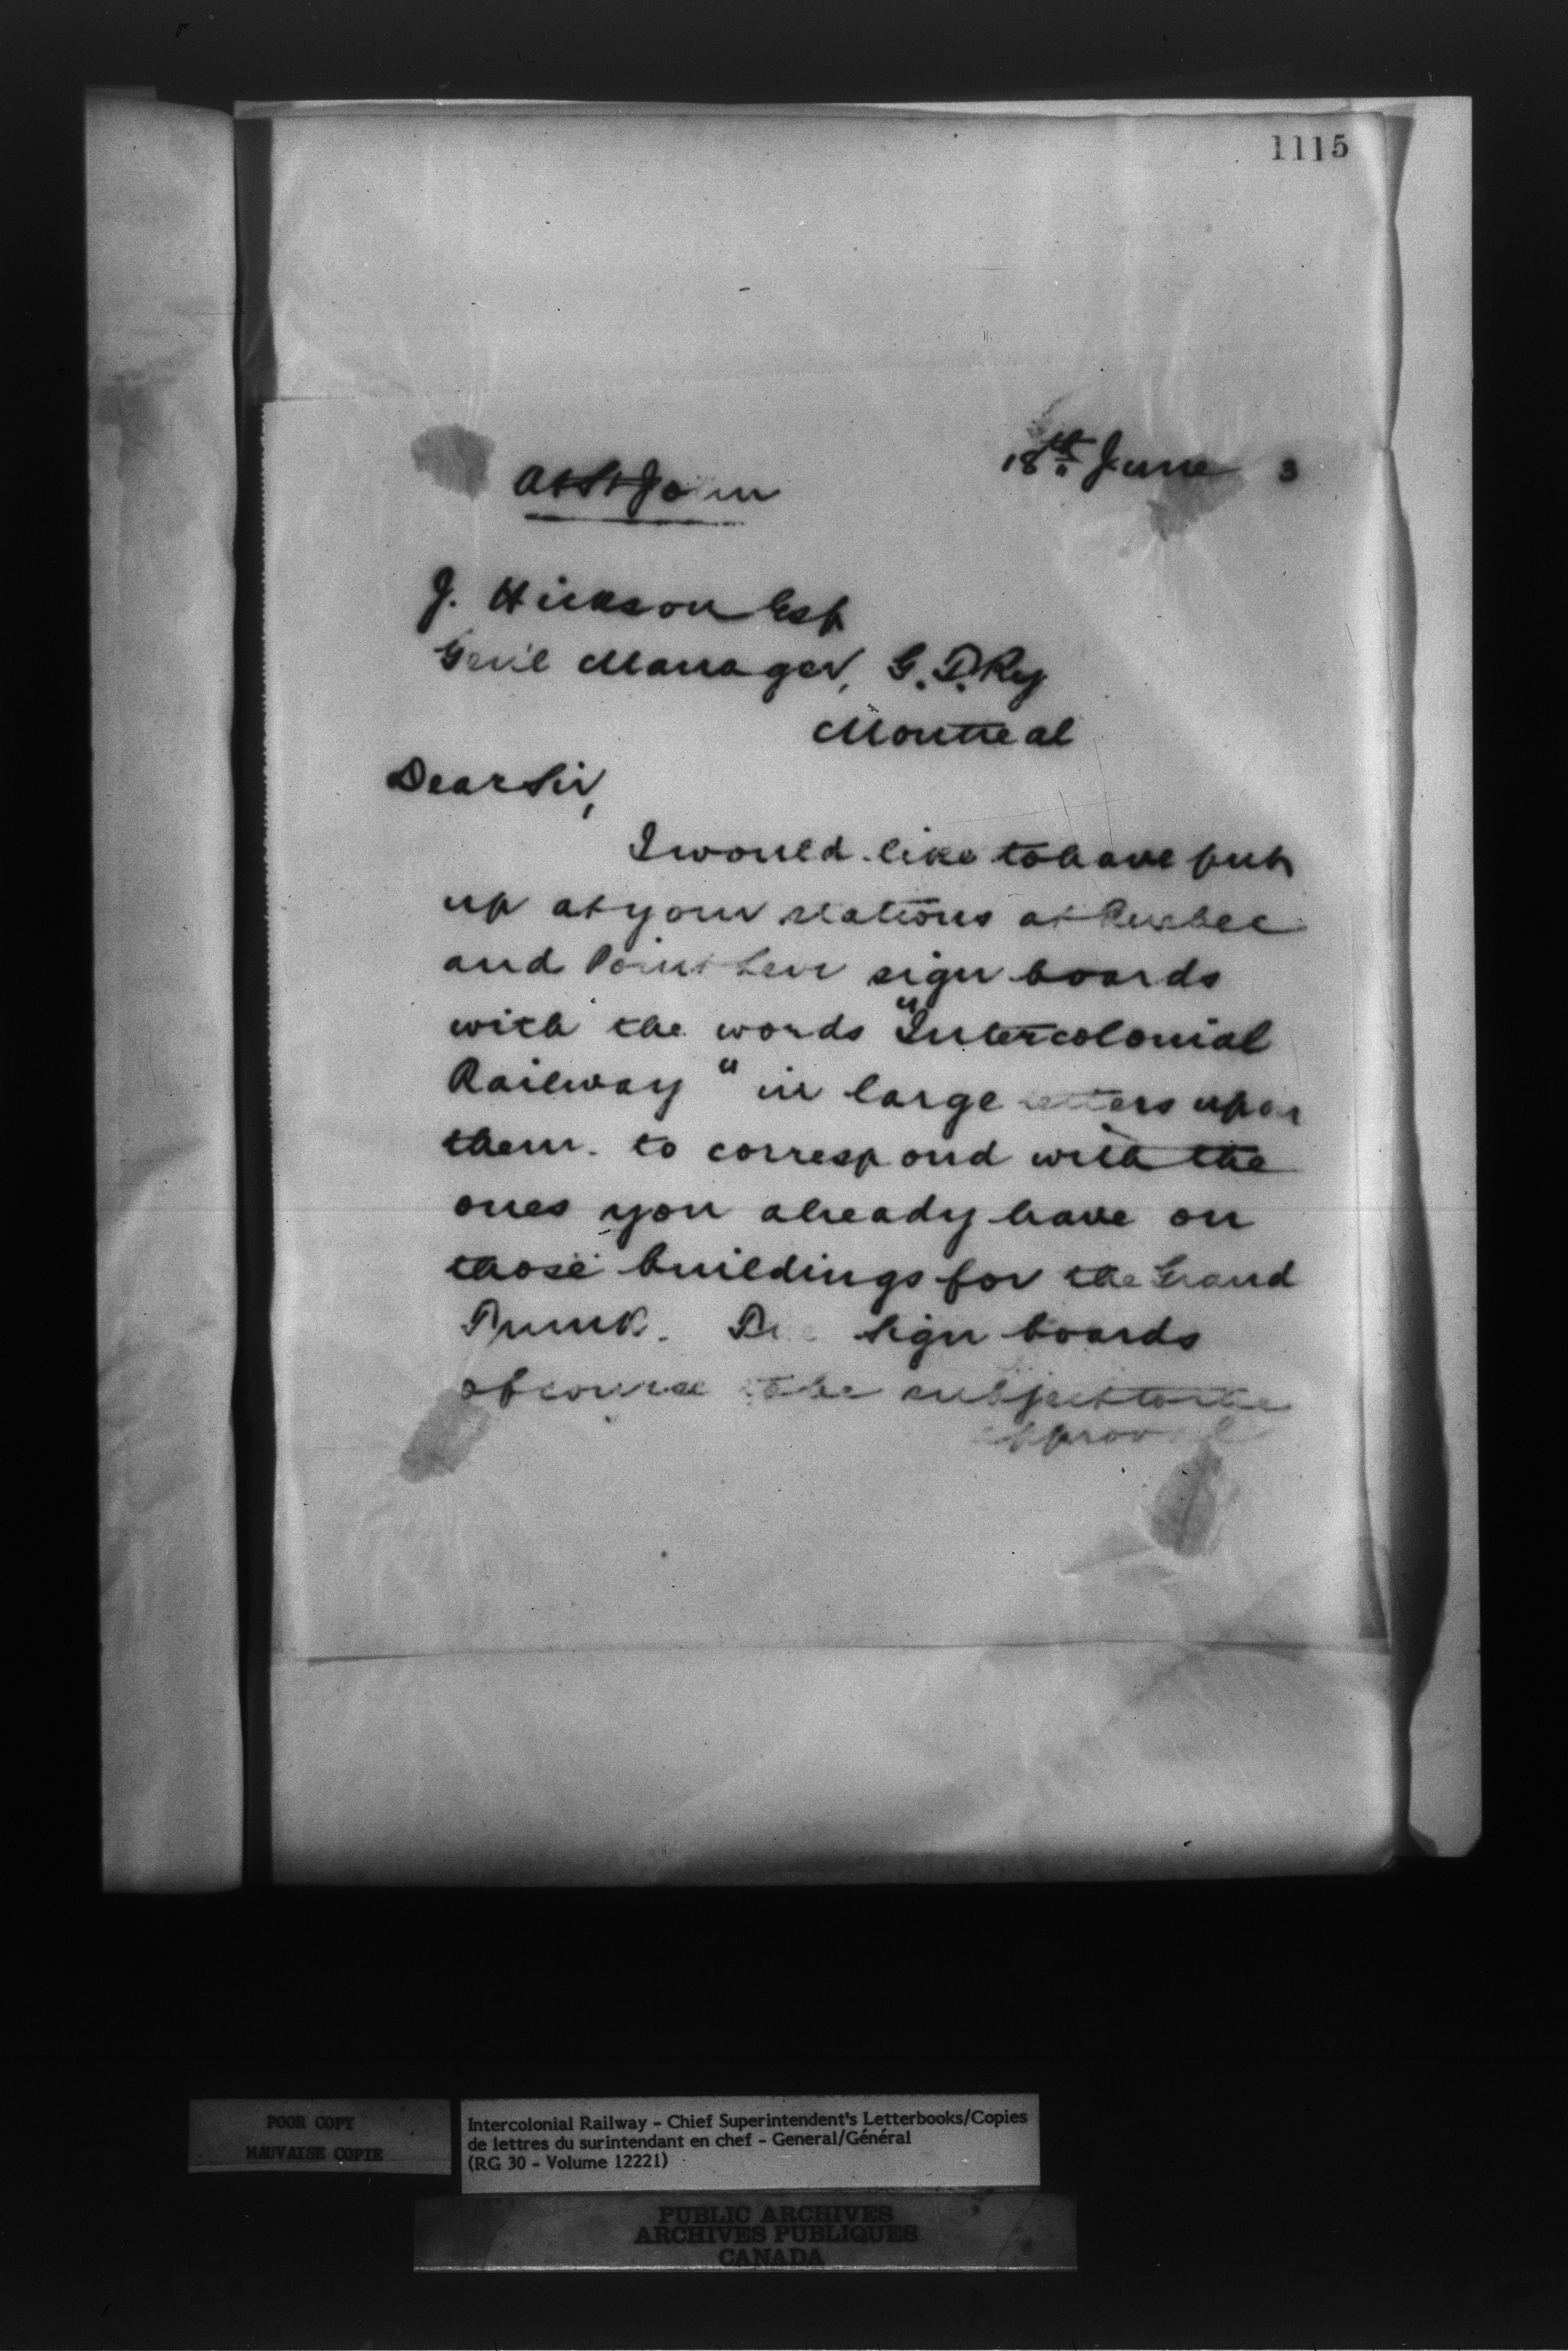 1115
18th June 3
At St John
J. Hickson Esq
Gen'l Manager, G. T. Ry
Montreal
Dear Sir,
I would like to have put
up at your stations at Quebec
and Point Levi sign boards
with the words "Intercolonial
Railway" in large letters upon
them. to correspond with the
ones you already have on
those buildings for the Grand
Trunk. The sign boards
of course to be subject to the
approval
POOR COPY
MAUVAISE COPIE
Intercolonial Railway - Chief Superintendent's Letterbooks/Copies
de lettres du surintendant en chef - General/Général
(RG 30 - Volume 12221)
PUBLIC ARCHIVES
ARCHIVES PUBLIQUES
CANADA